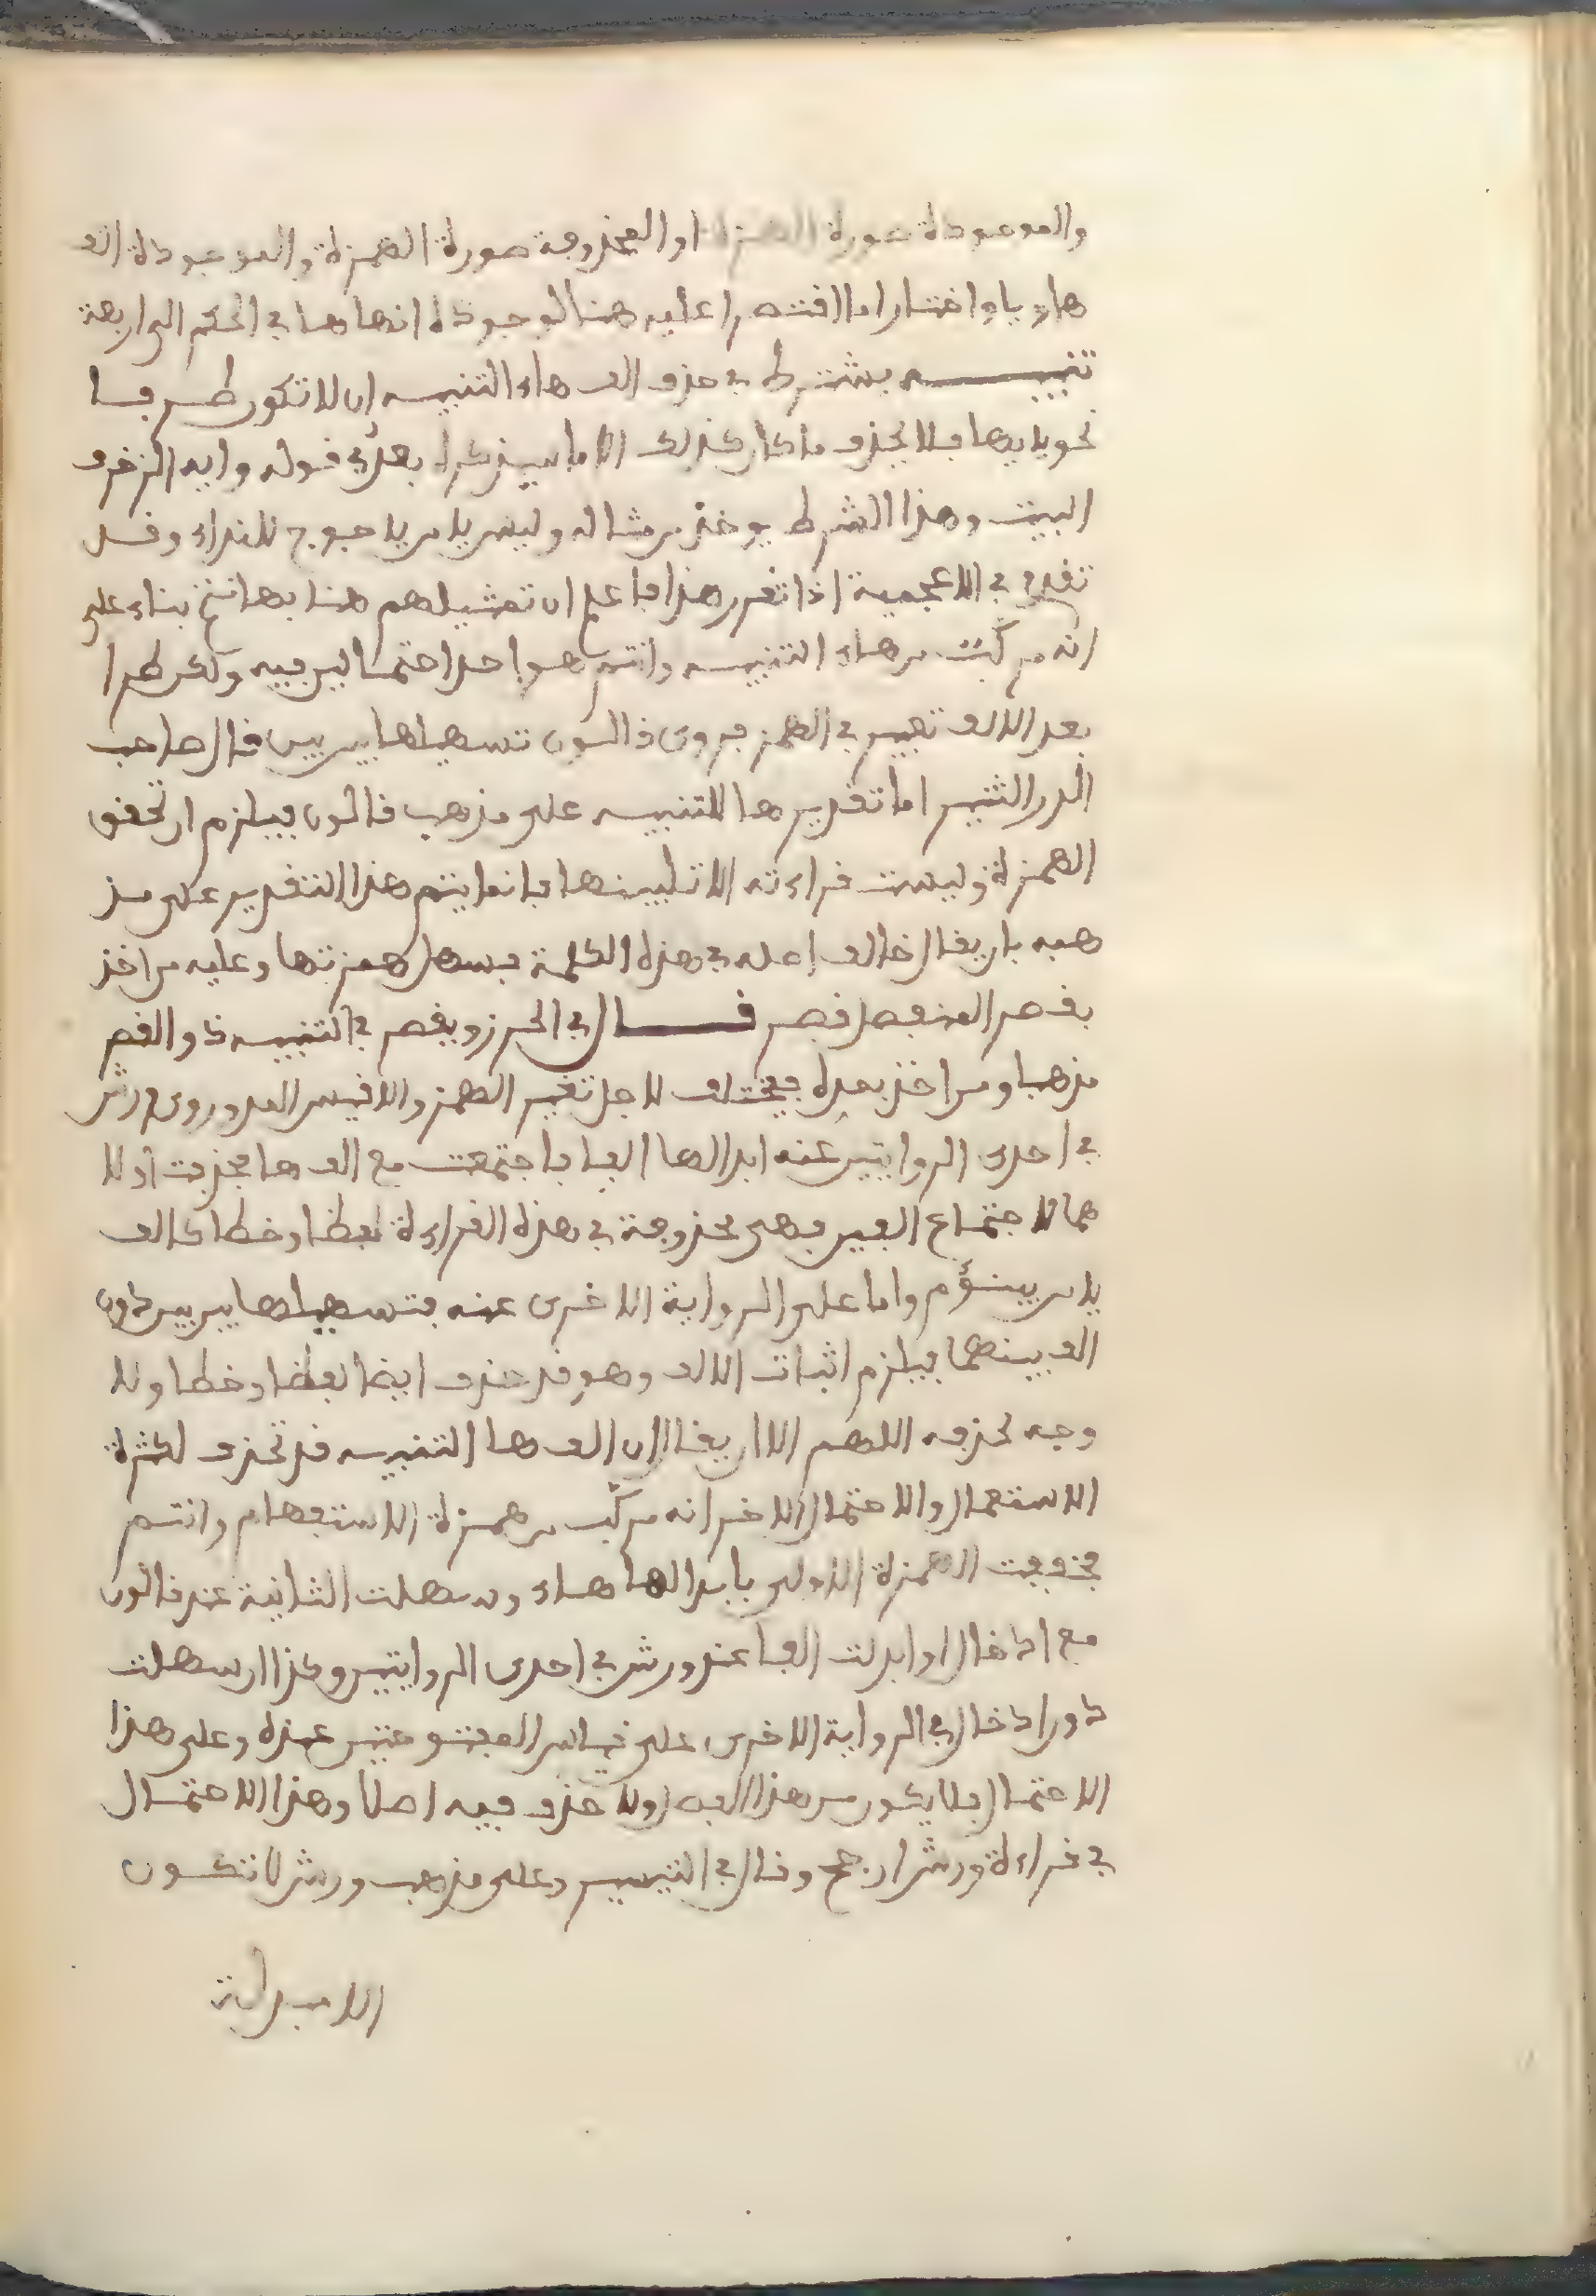 والموجودة صورة الهمزة او المحذوفة صورة الهمزة والموجودة الف
هاء ويا واختارا ما اقتصرا عليه هنا لوجود انهاها في الحكم الرابعة
تنبيه يشترط في حذف الف هاء التنبيه ان لا تكون طرفا
نحو يايها فلا يحذف ما كان كذلك الا ما سيذكره بعد في قوله وايه الزخرف
البيت وهذا الشرط يوخذ من مثاله وليس يا من ياجوج للنداء وقد
تقدم في الاعجمية اذا تقرر هذا فاعلم ان تمثيلهم هنا بهانتم بناء على
انه مركب من هاء التنبيه وانتم هو احد احتمالين فيه ولكن طرا
بعد الالف تغيير في الهمز فروى قالون تسهيلها بين بين قال صاحب
الدر النثير اما تقدير ها للتنبيه على مذهب قالون فيلزم ان تحقق
الهمزة وليست قراءته الا تليينها فانما يتم هذا التقدير على مذ
هبه بان يقال خالف اصله في هذه الكلمة فسهل همزتها وعليه من اخذ
بقصر المنفصل قصر قال في الحرز ويقصر في التنبيه ذو القصر
مذهبا ومن اخذ بمده فيختلف لاجل تغير الهمز والاقيس المد وروى ورش
في احدى الروايتين عنه ابدالها الفا فاجتمعت مع الف ها فحذفت اولا
هما لاجتماع الفين فهى محذوفة في هذه القراءة لفظا وخطا كالف
يا من يبنؤم واما على الرواية الاخرى عنه بتسهيلها بين بين دون
الف بينهما فيلزم اثبات الالف وهو قد حذف ايضا لفظا وخطا ولا
وجه لحذفه اللهم الا ان يقال ان الف ها التنبيه قد تحذف لكثرة
الاستعمال والاحتمال الاخر انه مركب من همزة الاستفهام وانتم
فخففت الهمزة الاولى بابدالها هاء وسهلت الثانية عند قالون
مع ادخال او ابدلت الفا عند ورش في احدى الروايتين وكذا ان سهلت
دون ادخال في الرواية الاخرى على قياس المفتوحتين عنده وعلى هذا
الاحتمال فلا يكون من هذا الفصل ولا حذف فيه اصلا وهذا الاحتمال
في قراءة ورش ارجح وقال في التيسير وعلى مذهب ورش لا تكون
الا مبدلة